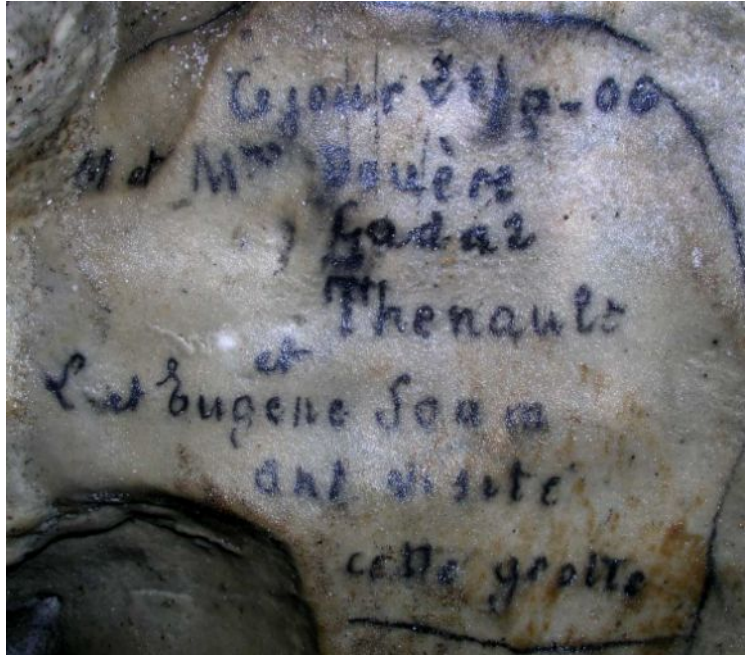 Ce jour 21/9-00
M et Mme
Gadal
Thenault
et
L et Eugene Soum
ont visité
cette grotte